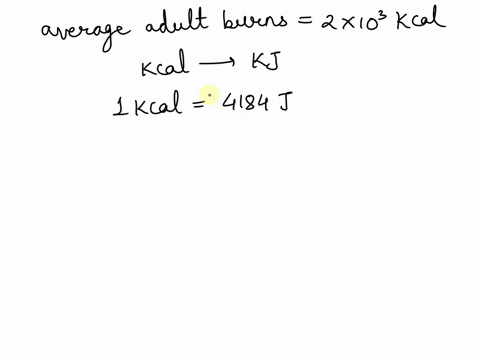 average adult burns = 2×10³ Kcal
Kcal ⟶ KJ
1 Kcal = 4184 J